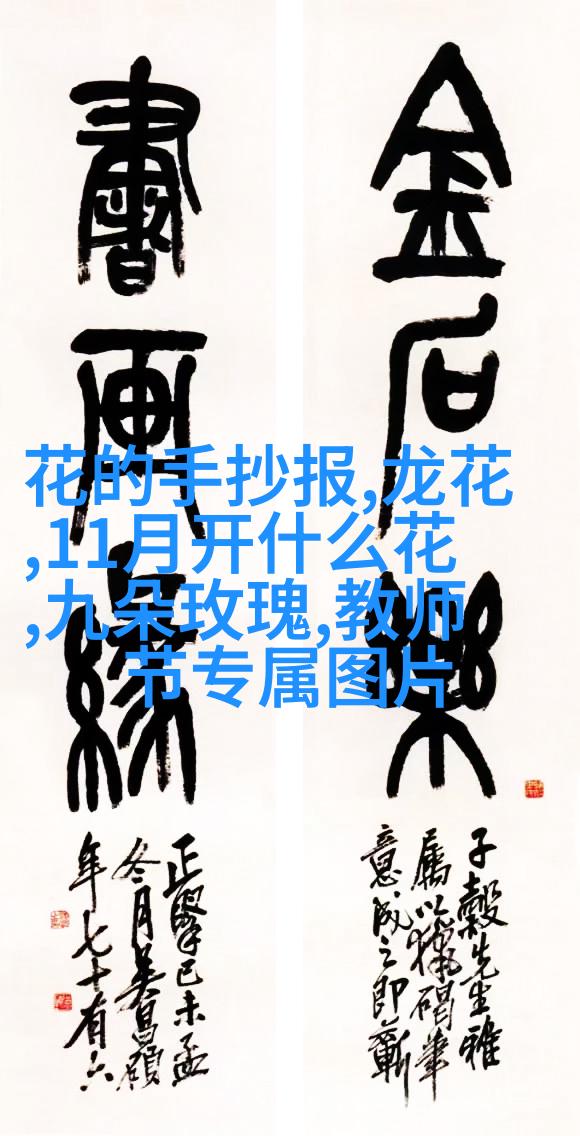 金石樂
子穀先生雅
屬以獵碣筆
意成之即蘄
書畫緣
正擥己未孟
冬月吴昌碩
年七十有六
花的手抄报,龙花
,11月开什么花
,九朵玫瑰,教师
节专属图片